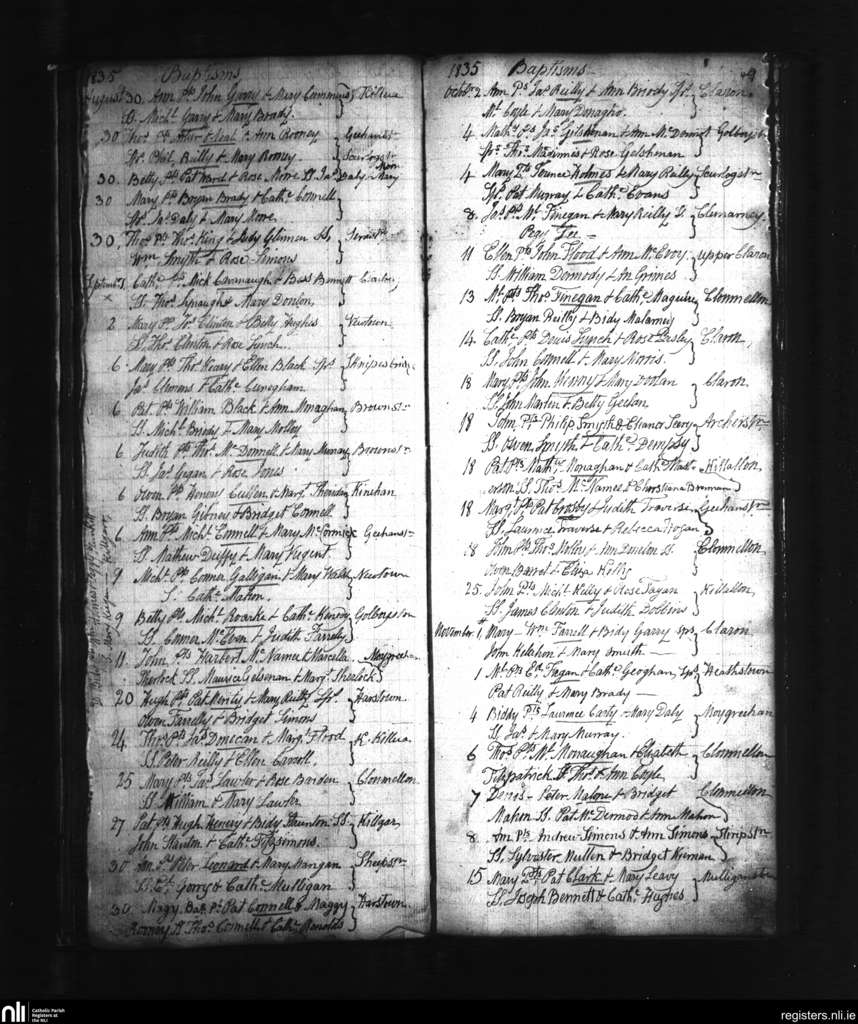 1835 Baptisms
August 30 Ann Ps John Garry & Mary Cummins Killua
Ss Michl Garry & Mary Brady
30 Thos Ps & Ann Rooney Geehanstn
Sps Phil Reilly & Mary Rooney Scurlogstn
30 Betty Ps Pat Ward & Rose Moore Ss Jas Daly Mary Moore
30 Mary Ps Bryan Brady & Cathe Connell
Sps Jas Daly & Mary Moore
30 Thos Ps Thos King & Judy Ss
Wm Smyth & Rose Simons
Septembr 1 Cathe Ps Mick Cavanaugh & Bess Bennett
Ss Thos & Mary Donlon
2 Mary Ps Jas Clinton & Betty Hughes Newtown
Ss Thos Clinton & Rose Lynch
6 Mary Ps Thos Keary & Ellen Black Sps Knipesbridge
Jas Clemons & Cathe
6 Pat Ps William Black & Ann Monaghan Brownstn
Ss Michl Briody & Mary Molloy
6 Judith Ps Thos McDonnell & Mary Murray Brownstn
Ss Jas Gegan & Rose Jones
6 Owen Ps Henery Cullen & Margt Sheridan Kinehan
Ss Bryan Gibney & Bridget Connell
6 Ann Ps Michl Connell & Mary McCormick Geehanstn
Ss Mathew Duffy & Mary Nugent
9 Michl Ps Conner Galligan & Mary Walsh Newtown
S. Cathe Mahon
9 Betty Ps Michl Roarke & Cathe Henery Golborpstn
Ss Conner & Judith Farrely
11 John Ps Harbert McNamee & Marcella Moygreehan
Sherlock Ss Maurice Gelsenan & Margt Sherlock
20 Hugh Ps Pat & Mary Reilly Sps Harstown
Owen Farrelly & Bridget Simons
24 Thos Ps Jas Donegan & Margt Flood K Killua
Ss Peter Reilly & Ellen Carroll
25 Mary Ps Jas Lawler & Rose Barden Clonmellon
Ss William & Mary Lawler
27 Pat Ps Hugh Henery & Bidy Staunton Ss Killgar
John Stanton & Cathe Fitzsimons
30 An Ps Peter Leonard & Mary Mangan Sheepstn
Ss Gorry & Cathe Mulligan
30 Magy Bap Ps Pat Connell & Maggy Harstown
Rooney Ss Thos Connell & Cathe Renolds
1835 Baptisms
Octobr 2 Ann Ps Jas Reilly & Ann Briody Sps Claron
Mt Coyle & Mary Donagho
4 Mathw Ps Jas Gilshenan & Ann McDermot Golborpstn
Sps Thos & Rose Gelshenan
4 Mary Ps Holmes & Mary Reilly Scurlogstn
Sps Pat Murray & Cathe Evans
8 Jas Ps Mt Finegan & Mary Reilly S. Clemarney
Pegy Fee
11 Ellen Ps John Flood & Ann McEvoy upper Claron
Ss William Dormody & An Grimes
13 Mt Ps Thos Finegan & Cathe Maguire Clonmellon
Ss Bryan Reilly & Bidy Malarney
14 Cathe Ps Denis Lynch & Rose Claron
Ss John Connell & Mary Morris
18 Mary Ps John Henry & Mary Donlan Claron
Ss John Marten & Betty Geelan
18 John Ps Philip Smyth & Elianor Archerstn
Ss Owen Smyth & Cathe Dempsy
18 Pat Ps Mathw Monaghan & Cathe Killallon
Ss Thos McNamee & Christiana Brennan
18 Margt Ps Pat Crosby & Judith Traverse Geehanstn
Ss Laurence Traverse & Rebecca Hogan
18 John Ps Thos Molloy & Ann Ss Clonmellon
Owen Barret & Eliza Kelly
25 John Ps Michl Kelly & Rose Fagan Killallon
Ss James Clinton & Judith Dobbins
November 1 Mary Wm Farrell & Bidy Garry Sps Claron
John & Mary Smith
1 Mt Ps Ed Fagan & Cathe Geoghan Sps Heathstown
Pat Reilly & Mary Brady
4 Biddy Ps Laurence Carty & Mary Daly Moygreehan
Ss Jas & Mary Murray
6 Thos Ps Mt Monaughan & Elizabeth Clonmellon
Fitzpatrick Ss Thos & Ann Coyle
7 Denis Peter Malone & Bridget Clonmellon
Mahon Ss Pat McDermod & Ann Mahon
8 An Ps Andrew Simons & Ann Simons
Ss Sylvester Mullen & Bridget Kiernan
15 Mary Ps Pat Clark & Mary Leavy Mulliganstn
Ss Joseph Bennett & Cathe Hughes
nli
Catholic Parish
Registers at
the NLI
registers.nli.ie